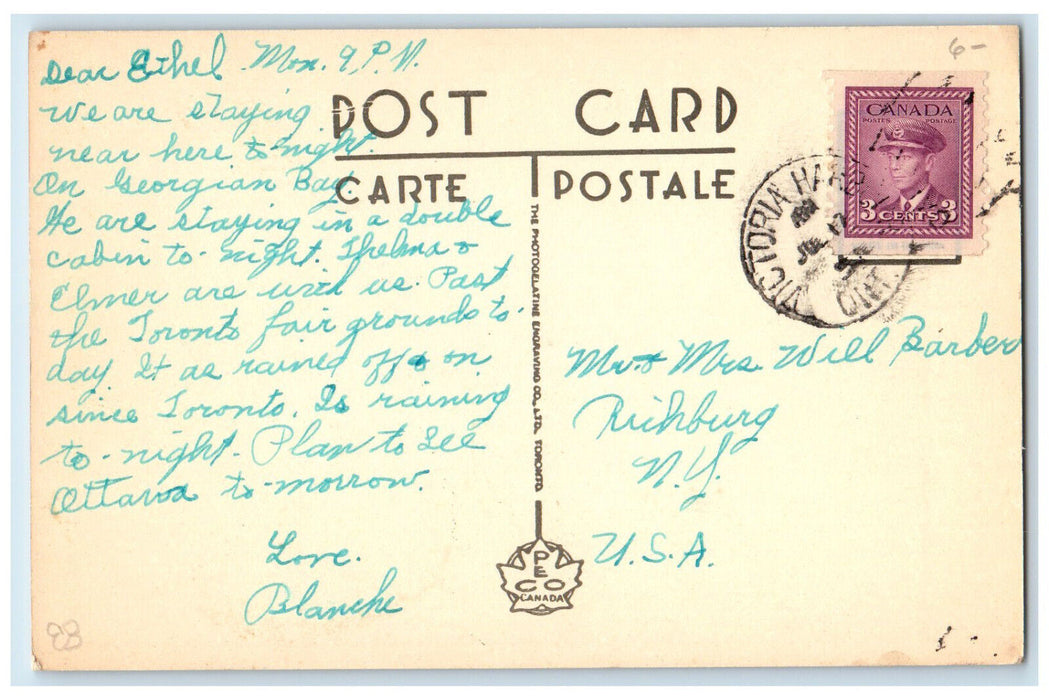 Dear Ethel Mon. 9 P.M.
We are staying
near here to-night.
On Georgian Bay
We are staying in a double
cabin to-night. Thelma &
Elmer are with us. Past
the Toronto fair grounds to-
day. It as rained off & on
since Toronto. Is raining
to-night. Plan to See
Ottawa to-morrow.
Love.
Blanche
88
POST CARD
CARTE POSTALE
THE PHOTOGELATINE ENGRAVING CO., LTD. TORONTO
PECO
CANADA
6-
CANADA
POSTES POSTAGE
3 CENTS 3
VICTORIA HARB
ONT.
Mr. & Mrs. Will Barber
Richburg
N.Y.
U.S.A.